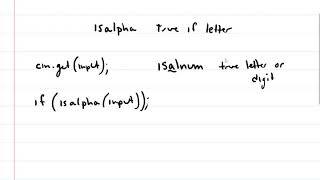 isalpha true if letter
cin.get(input); isalnum true letter or
digit
if (isalpha(input));